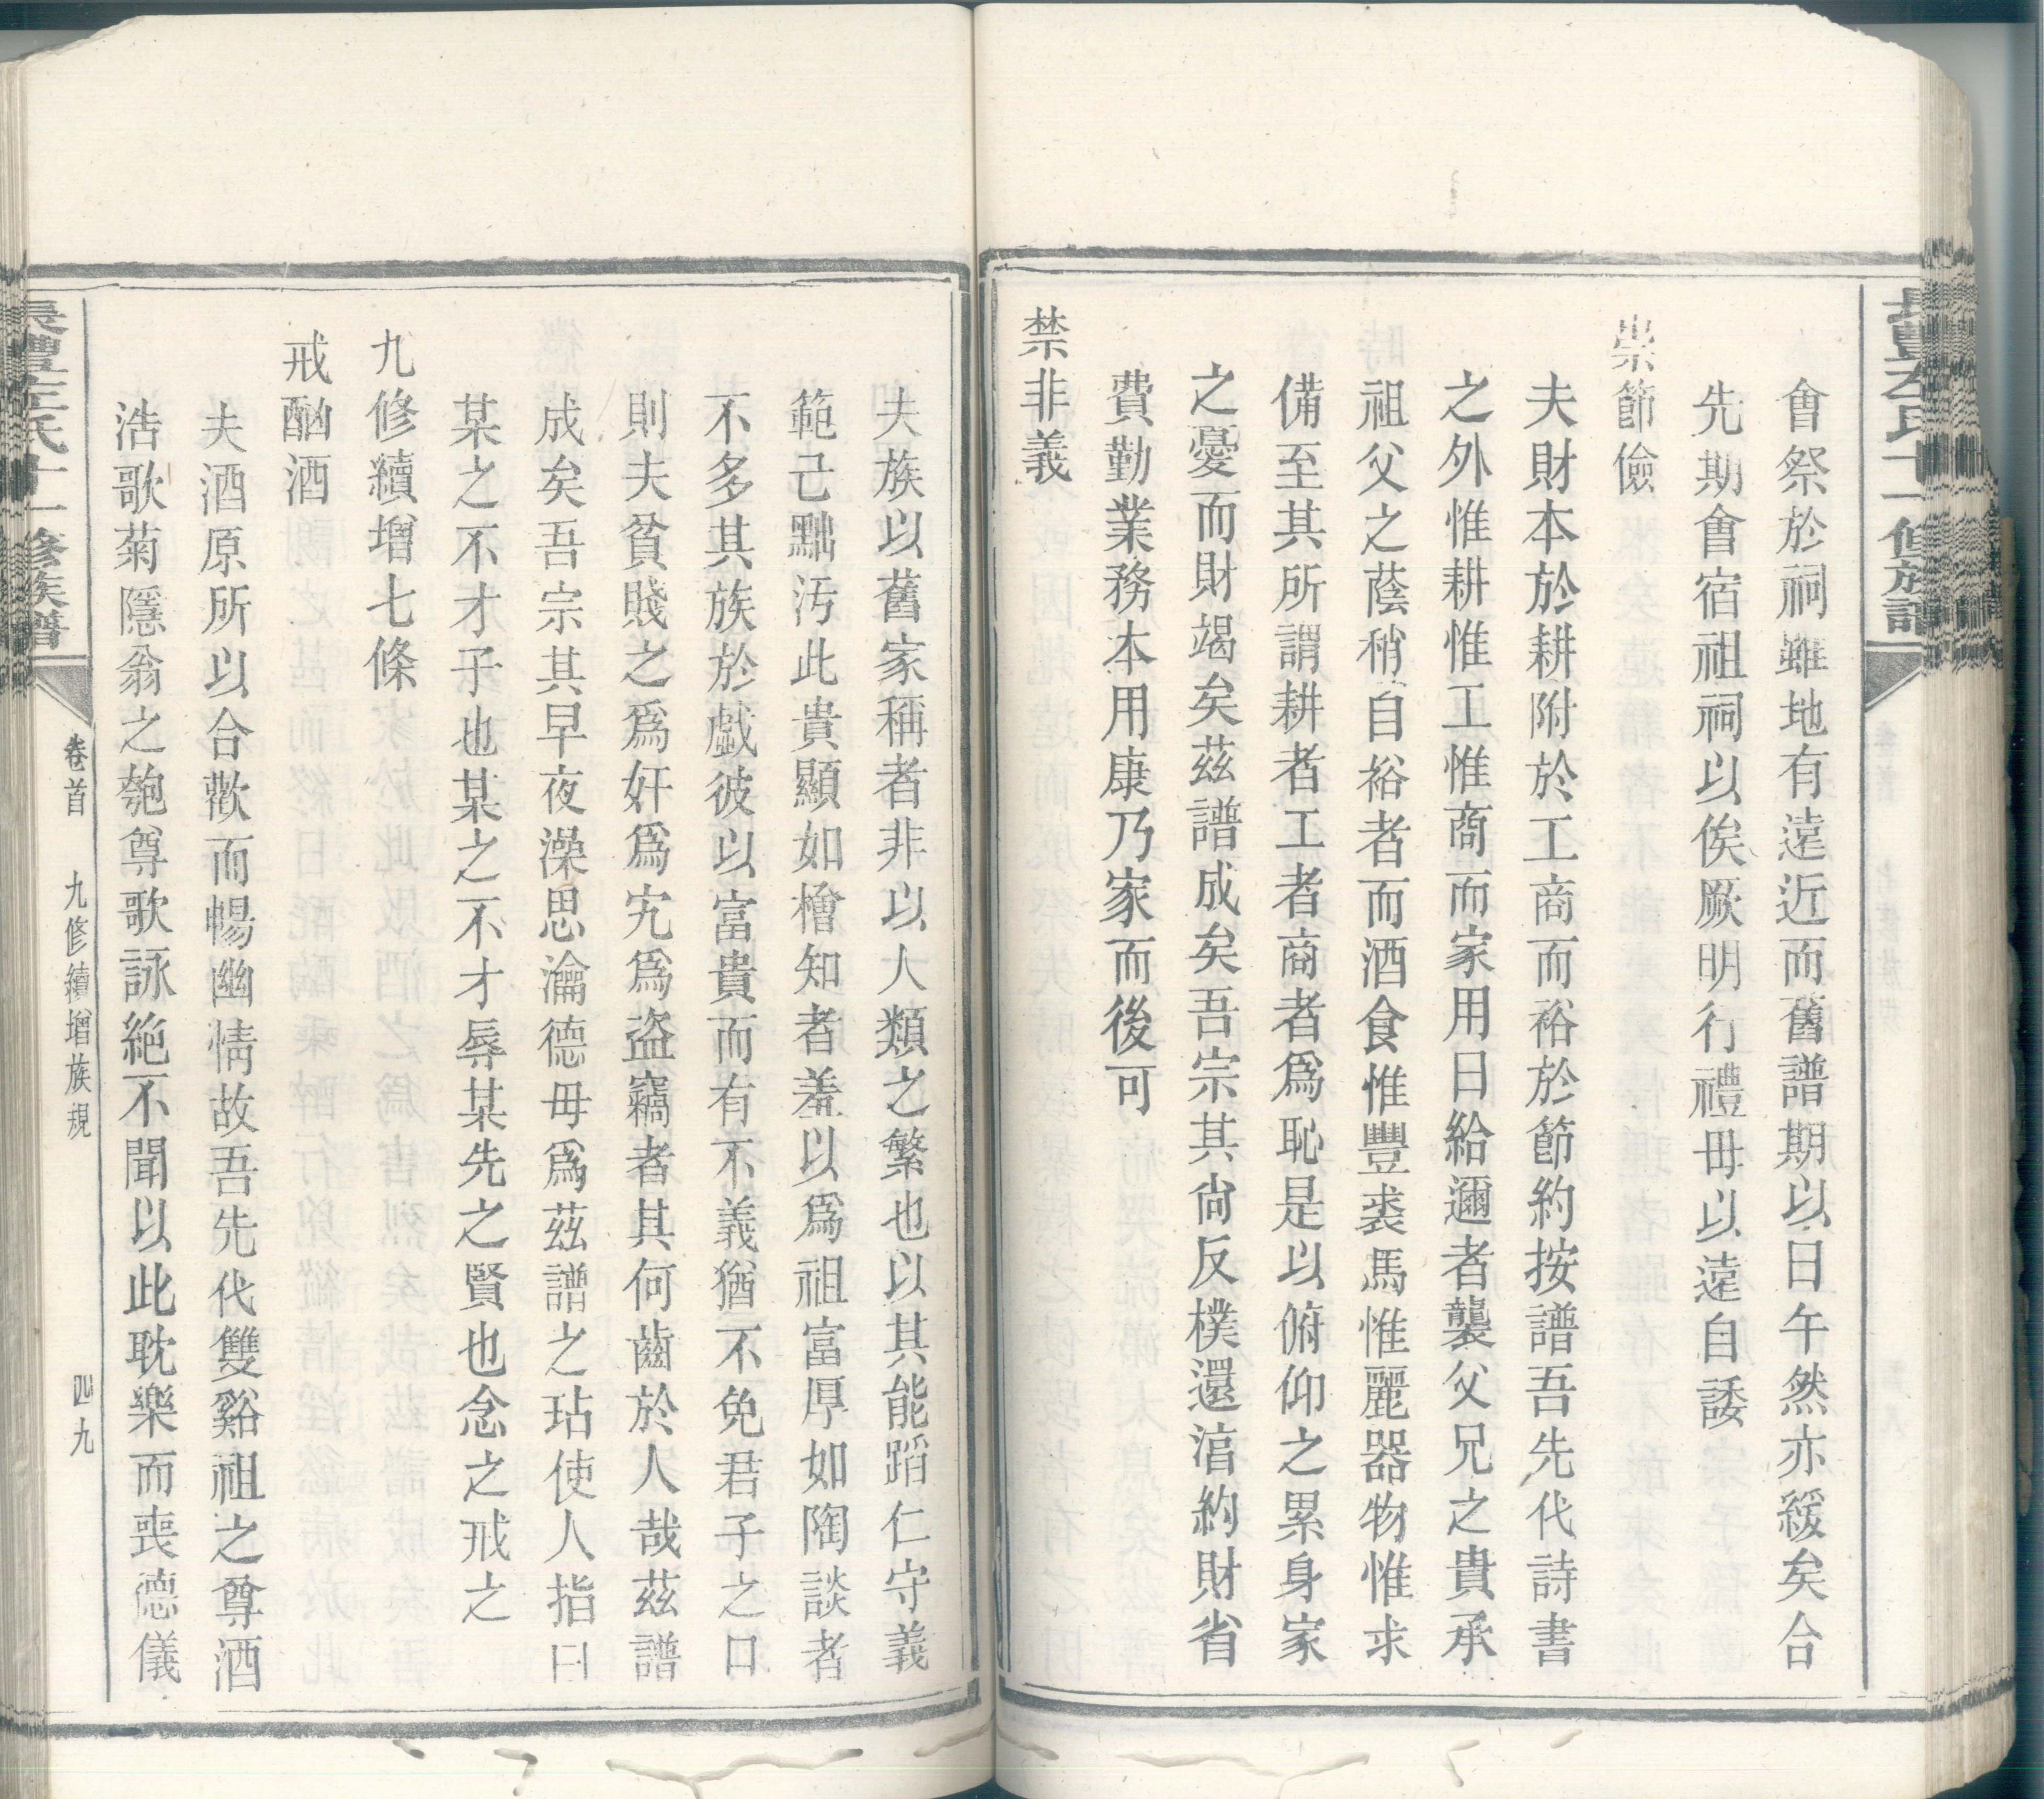 會祭於祠雖地有遠近而舊譜期以日午然亦緩矣合
先期會宿祖祠以俟厥明行禮毋以遠自諉
崇節儉
夫財本於耕附於工商而裕於節約按譜吾先代詩書
之外惟耕惟工惟商而家用日給邇者襲父兄之貴承
祖父之蔭稍自裕者而酒食惟豐裘馬惟麗器物惟求
備至其所謂耕者工者商者爲恥是以俯仰之累身家
之憂而財竭矣茲譜成矣吾宗其尙反樸還湻約財省
費勤業務本用康乃家而後可
禁非義
夫族以舊家稱者非以人類之繁也以其能蹈仁守義
範己黜汚此貴顯如檜知者羞以爲祖富厚如陶談者
不多其族於戲彼以富貴而有不義猶不免君子之口
則夫貧賤之爲奸爲宄爲盜竊者其何齒於人哉茲譜
成矣吾宗其早夜澡思瀹德毋爲茲譜之玷使人指曰
某之不才子也某之不才辱某先之賢也念之戒之
九修續增七條
戒酗酒
夫酒原所以合歡而暢幽情故吾先代雙谿祖之尊酒
浩歌菊隱翁之匏尊歌詠絕不聞以此耽樂而喪德儀
長豐左氏十一修族譜
卷首
九修續增族規
四九